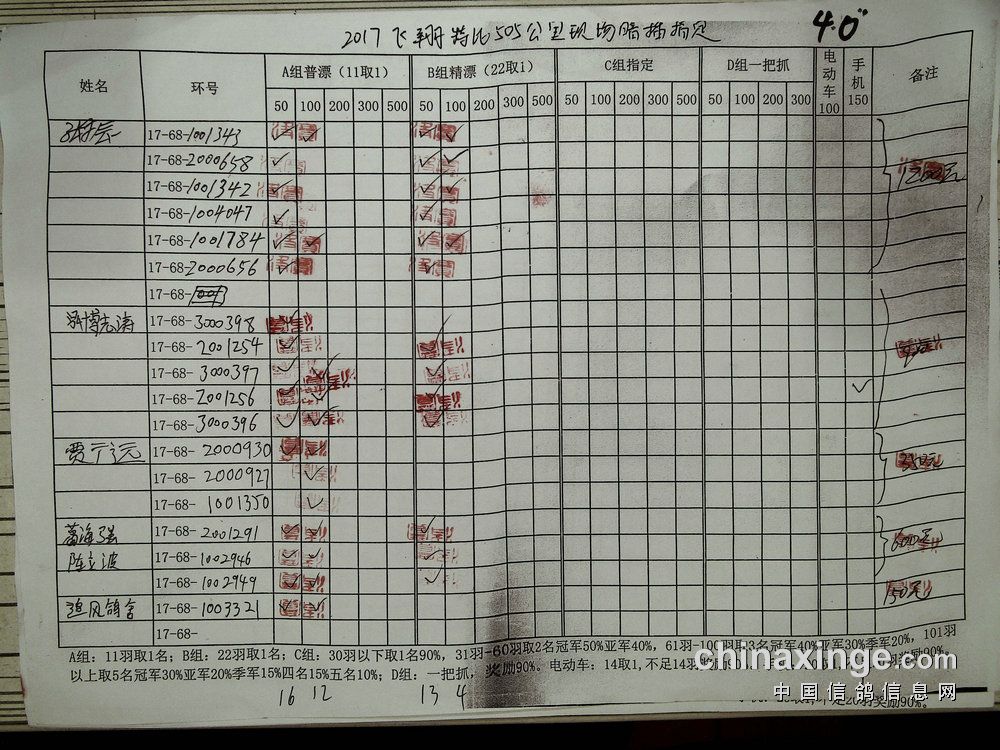 2017飞翔特比505公里现场暗插指定
40"
姓名 环号 A组普漂（11取1） B组精漂（22取1） C组指定 D组一把抓 电动车100 手机150 备注
50 100 200 300 500 50 100 200 300 500 50 100 200 300 500 50 100 200 300
17-68-1001343 ✓ ✓ ✓ ✓
17-68-2000658 ✓ ✓ ✓
17-68-1001342 ✓ ✓ ✓
17-68-1004047 ✓ ✓
17-68-1001784 ✓ ✓ ✓ ✓
17-68-2000656 ✓ ✓
17-68-
博志涛 17-68-3000398
17-68-2001254 ✓ ✓
17-68-3000397 ✓ ✓ ✓
17-68-2001256 ✓ ✓ ✓
17-68-3000396 ✓ ✓ ✓
贾广远 17-68-2000930
17-68-2000927 ✓
17-68-1001350 ✓
葛海强 17-68-2001291 ✓ ✓ ✓ 600元
陈立波 17-68-1002946 ✓ ✓ ✓
17-68-1002949 ✓ ✓ ✓ 150元
追风鸽舍 17-68-1003321 ✓ ✓
17-68-
A组：11羽取1名；B组：22羽取1名；C组：30羽以下取1名90%，31羽-60羽取2名冠军50%亚军40%，61羽-100羽取3名冠军40%亚军30%季军20%，101羽
以上取5名冠军30%亚军20%季军15%四名15%五名10%；D组：一把抓，奖励90%。电动车：14取1,不足14羽奖励90%。
不足20羽奖励90%。
16 12 13 4
chinaxinge.com
中国信鸽信息网